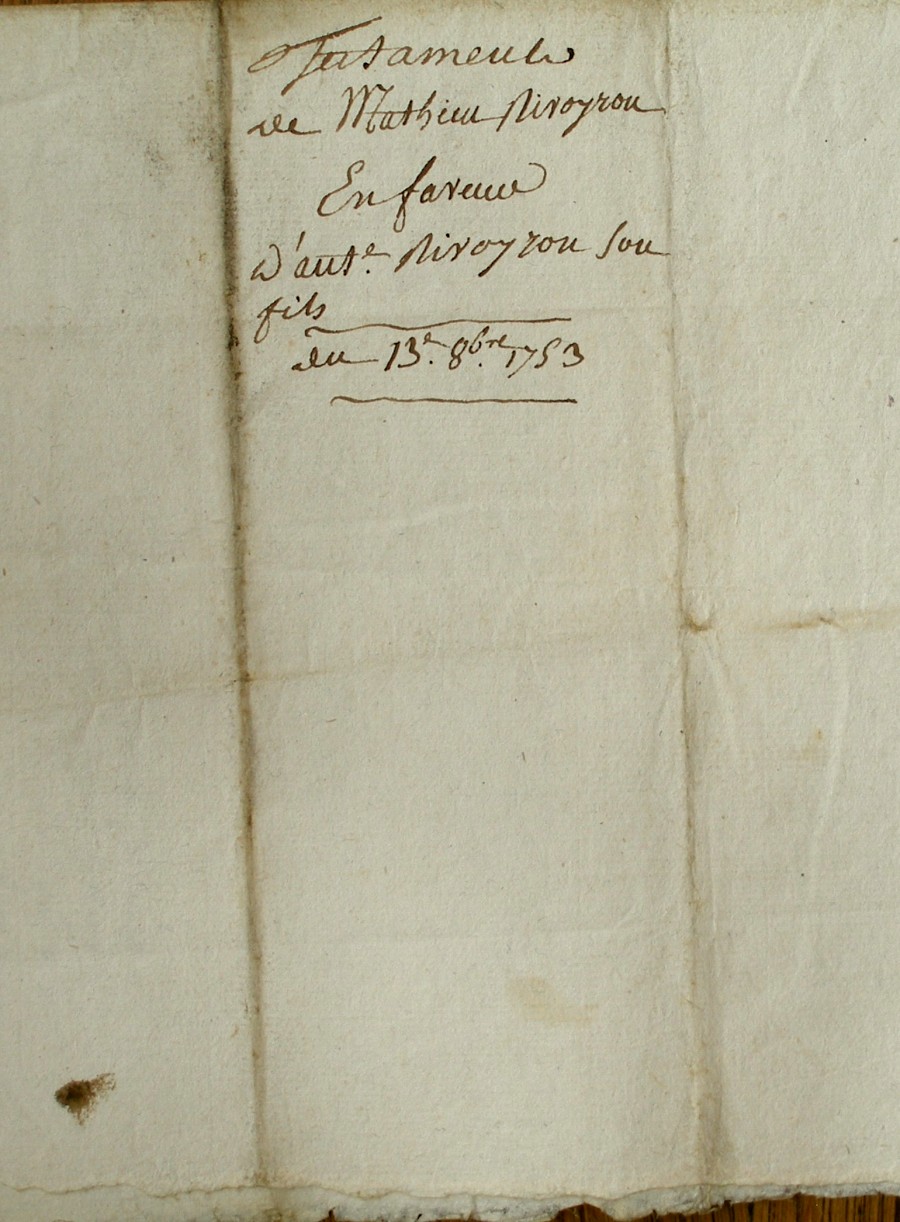 Testament
de Mathieu Riroyron
En faveur
d'ant.e Riroyron son
fils
du 13e. 8bre. 1753